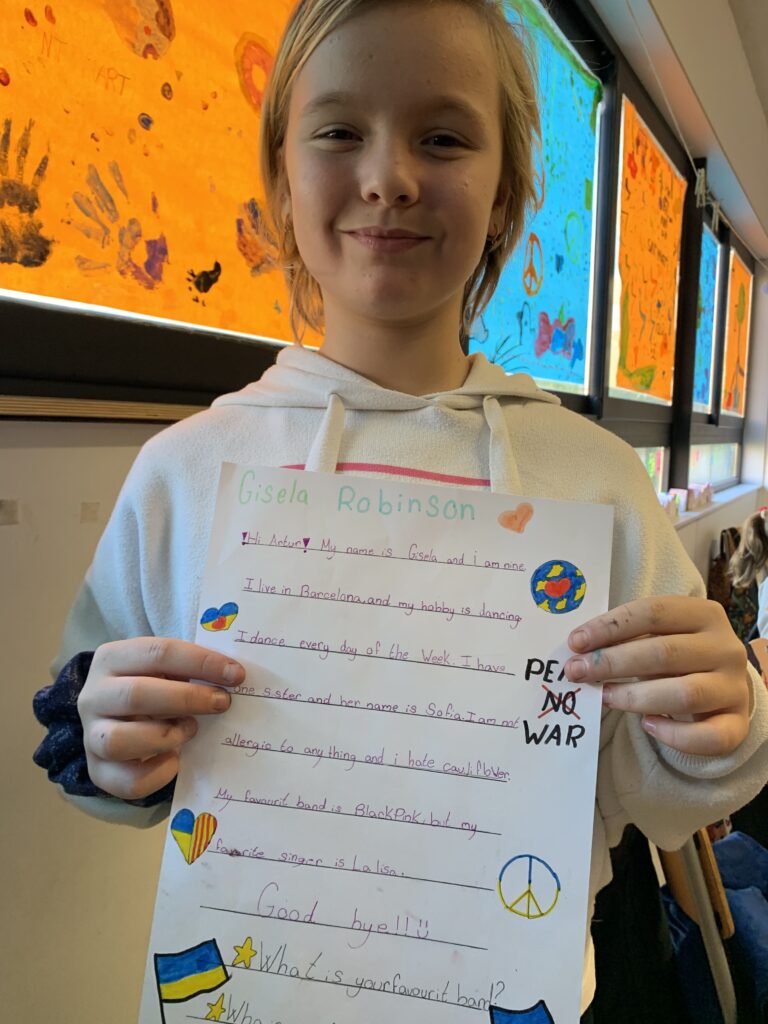 Gisela Robinson
Hi Artur! My name is Gisela and i am nine
I live in Barcelona, and my hobby is dancing.
I dance every day of the Week. I have
one sister and her name is Sofia. I am not
allergio to anything and i hate cauliflower.
My favourit band is BlackPink, but my
favorite singer is La lisa.
Good bye!!!
What is your favourit band?
PEA
NO
WAR